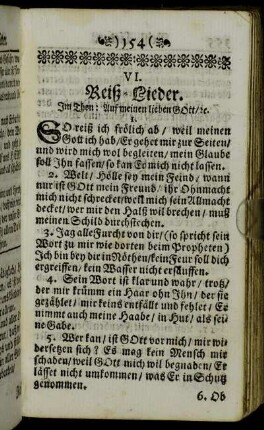 )154(
VI.
Reiß-Lieder.
Im Thon: Auf meinen lieben GOtt/ꝛc.
1.
SO reiß ich frölich ab/ weil meinen
Gott ich hab/ Er gehet mir zur Seiten/
und wird mich wol begleiten/ mein Glaube
soll Ihn fassen/ so kan Er mich nicht lassen.
2. Welt/ Hölle sey mein Feind/ wann
nur ist GOtt mein Freund/ ihr Ohnmacht
mich nicht schrecket/ weil mich sein Allmacht
decket/ wer mir den Halß wil brechen/ muß
meinen Schild durchstechen.
3. Jag alle Furcht von dir/ (so spricht sein
Wort zu mir wie dorten beim Propheten)
Ich bin bey dir in Nöthen/ kein Feur soll dich
ergreiffen/ kein Wasser nicht ersäuffen.
4. Sein Wort ist klar und wahr/ trotz/
der mir krümm ein Haar ohn Ihn/ der sie
gezählet/ mir keins entfällt und fehlet/ Er
nimmt auch meine Haabe/ in Hut/ als sei-
ne Gabe.
5. Wer kan/ ist GOtt vor mich/ mir wi-
dersetzen sich? Es mag kein Mensch mir
schaden/ weil GOtt mich wil begnaden/ Er
lässet nicht umkommen/ was Er in Schutz
genommen.
6. Ob